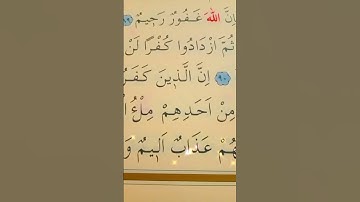 اِنَّ اللهَ غَفُورٌ رَحٖيمٌ
ثُمَّ ازْدَادُوا كُفْرًا لَنْ
اِنَّ الَّذٖينَ كَفَرُ
مِنْ اَحَدِهِمْ مِلْءُ
هُمْ عَذَابٌ اَلٖيمٌ وَ